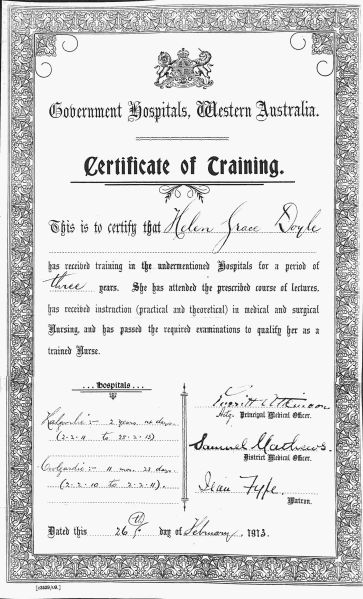 Government Hospitals, Western Australia.
Certificate of Training.
This is to certify that Helen Grace Doyle
has received training in the undermentioned Hospitals for a period of
three years. She has attended the prescribed course of lectures,
has received instruction (practical and theoretical) in medical and surgical
Nursing, and has passed the required examinations to qualify her as a
trained Nurse.
... Hospitals ...
Kalgoorlie :- 2 years 26 days
(2-2-11 to 28-2-13)
Coolgardie :- 11 mos. 28 days
(2-2-10 to 2-2-11).
Everitt Atkinson
Actg. Principal Medical Officer.
Samuel Mathews
District Medical Officer.
Jean Fyfe.
Matron.
Dated this 26th day of February 1913.